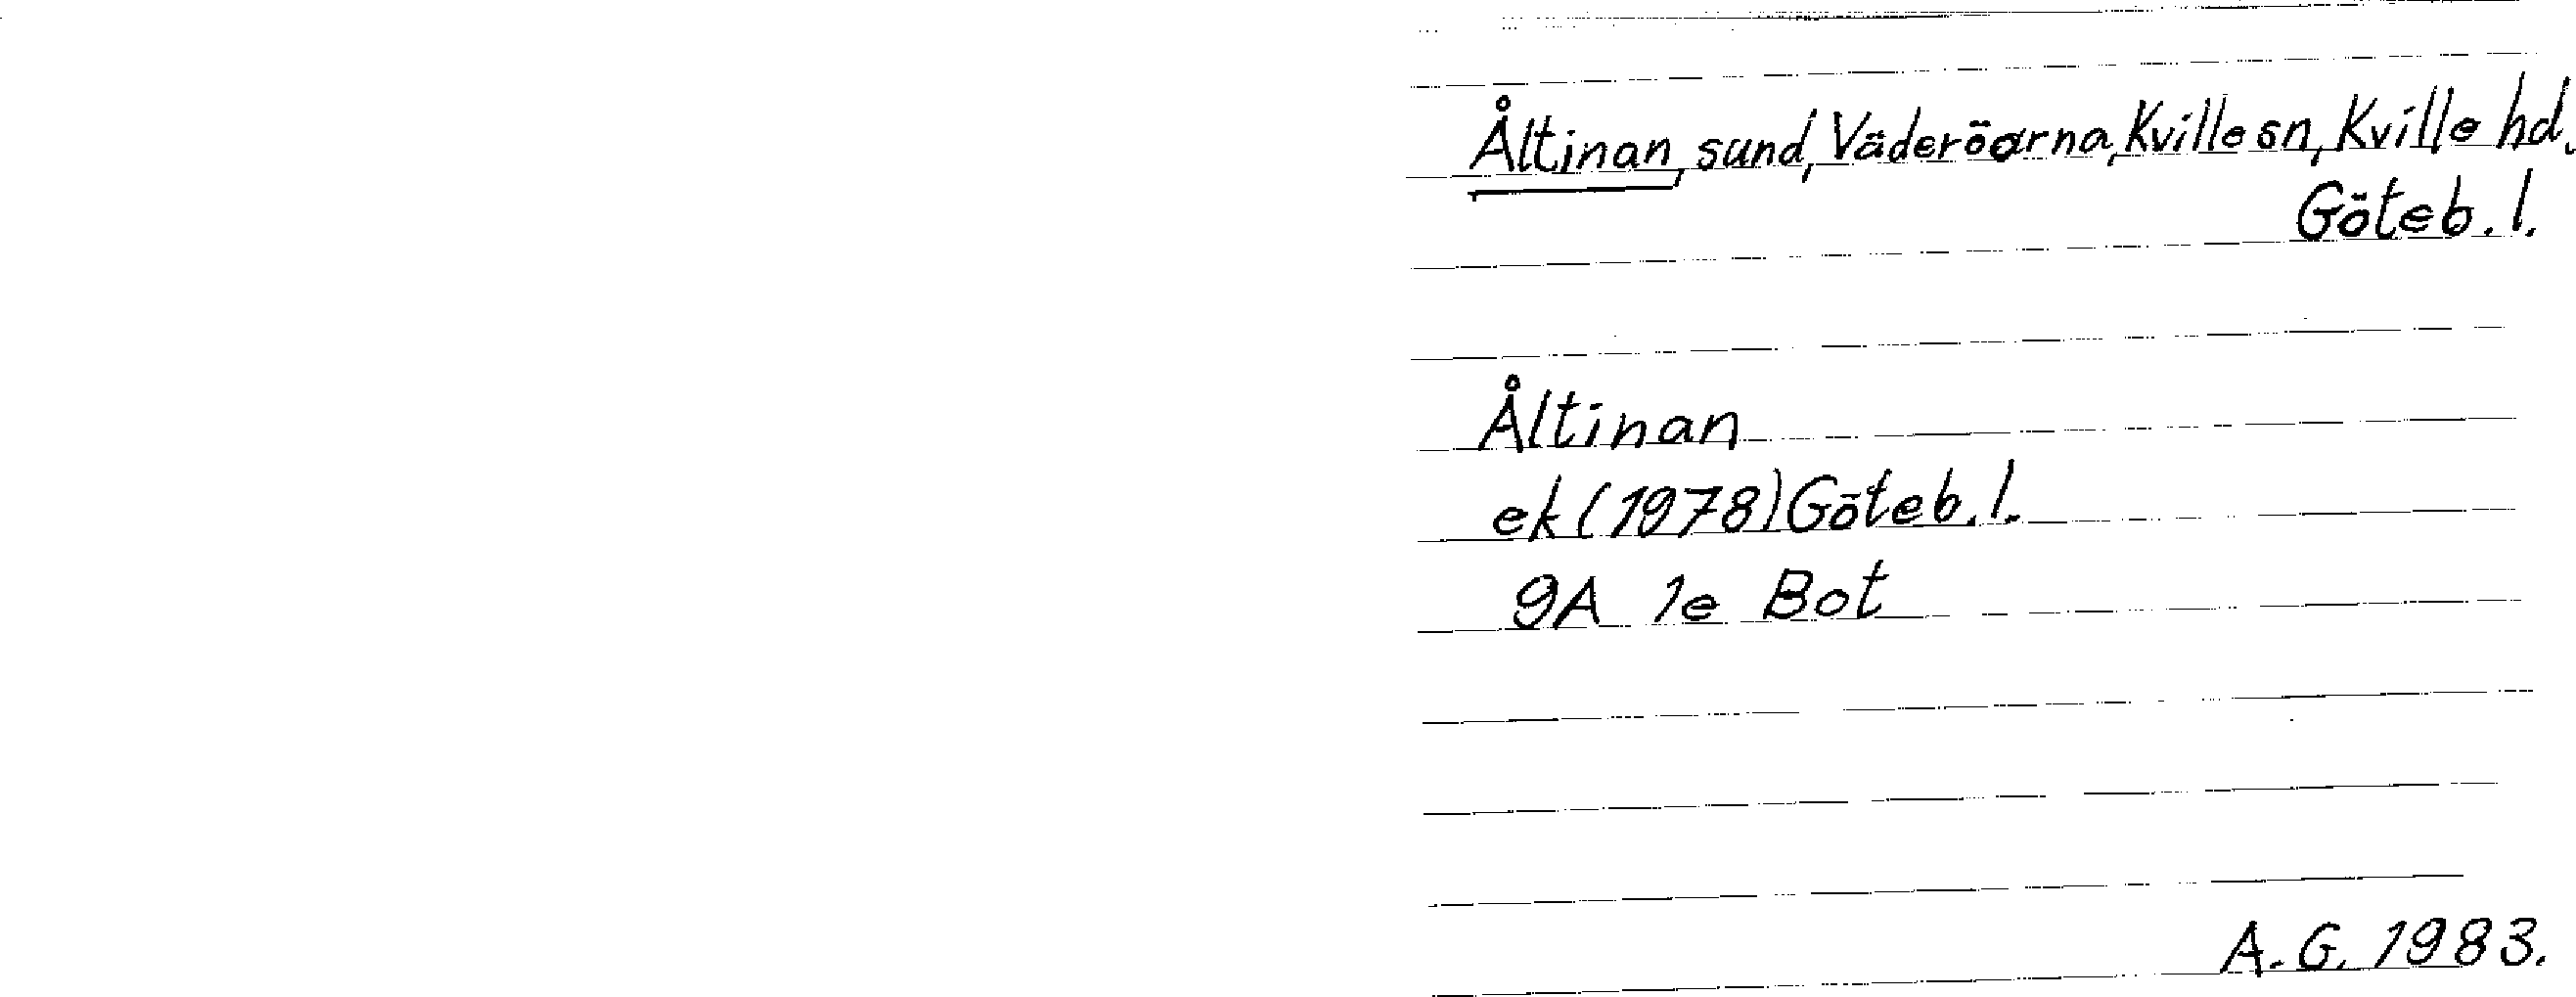 Åltinan, sund, Väderöarna, Kville sn, Kville hd.
Göteb. l.
Åltinan
ek (1978) Göteb. l.
9A 1e Bot
A. G. 1983.